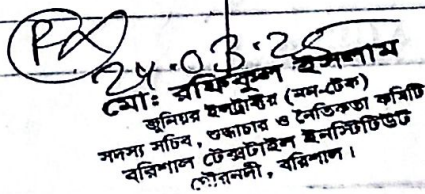 24.03.25
মো: রফিকুল ইসলাম
জুনিয়র ইন্সট্রাক্টর (নন-টেক)
সদস্য সচিব, শুদ্ধাচার ও নৈতিকতা কমিটি
বরিশাল টেক্সটাইল ইনস্টিটিউট
গৌরনদী, বরিশাল।